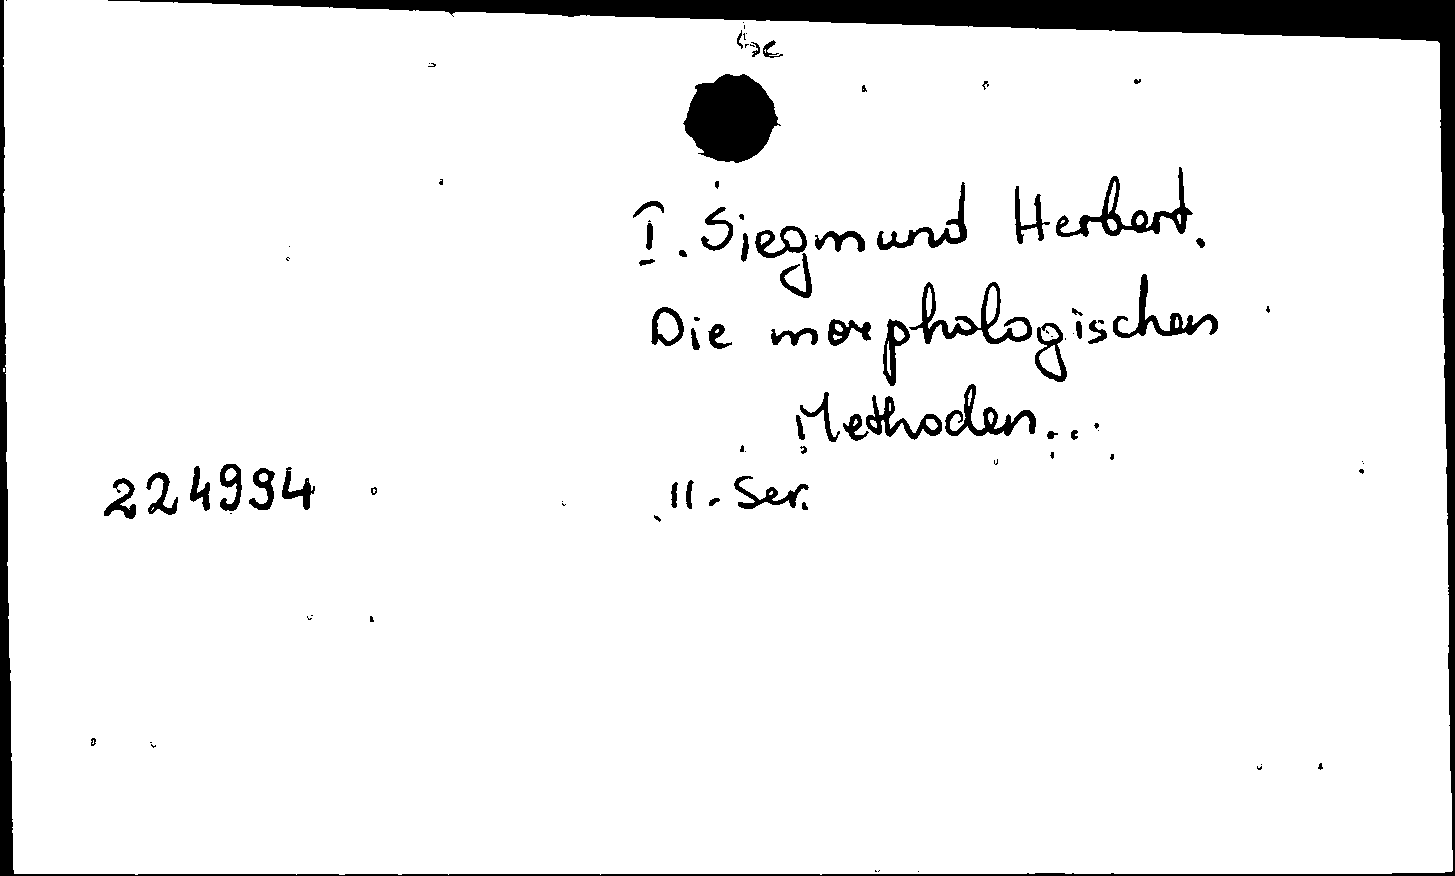 Sc
I. Siegmund Herbert.
Die morphologischen
Methoden...
224994
II. Ser.